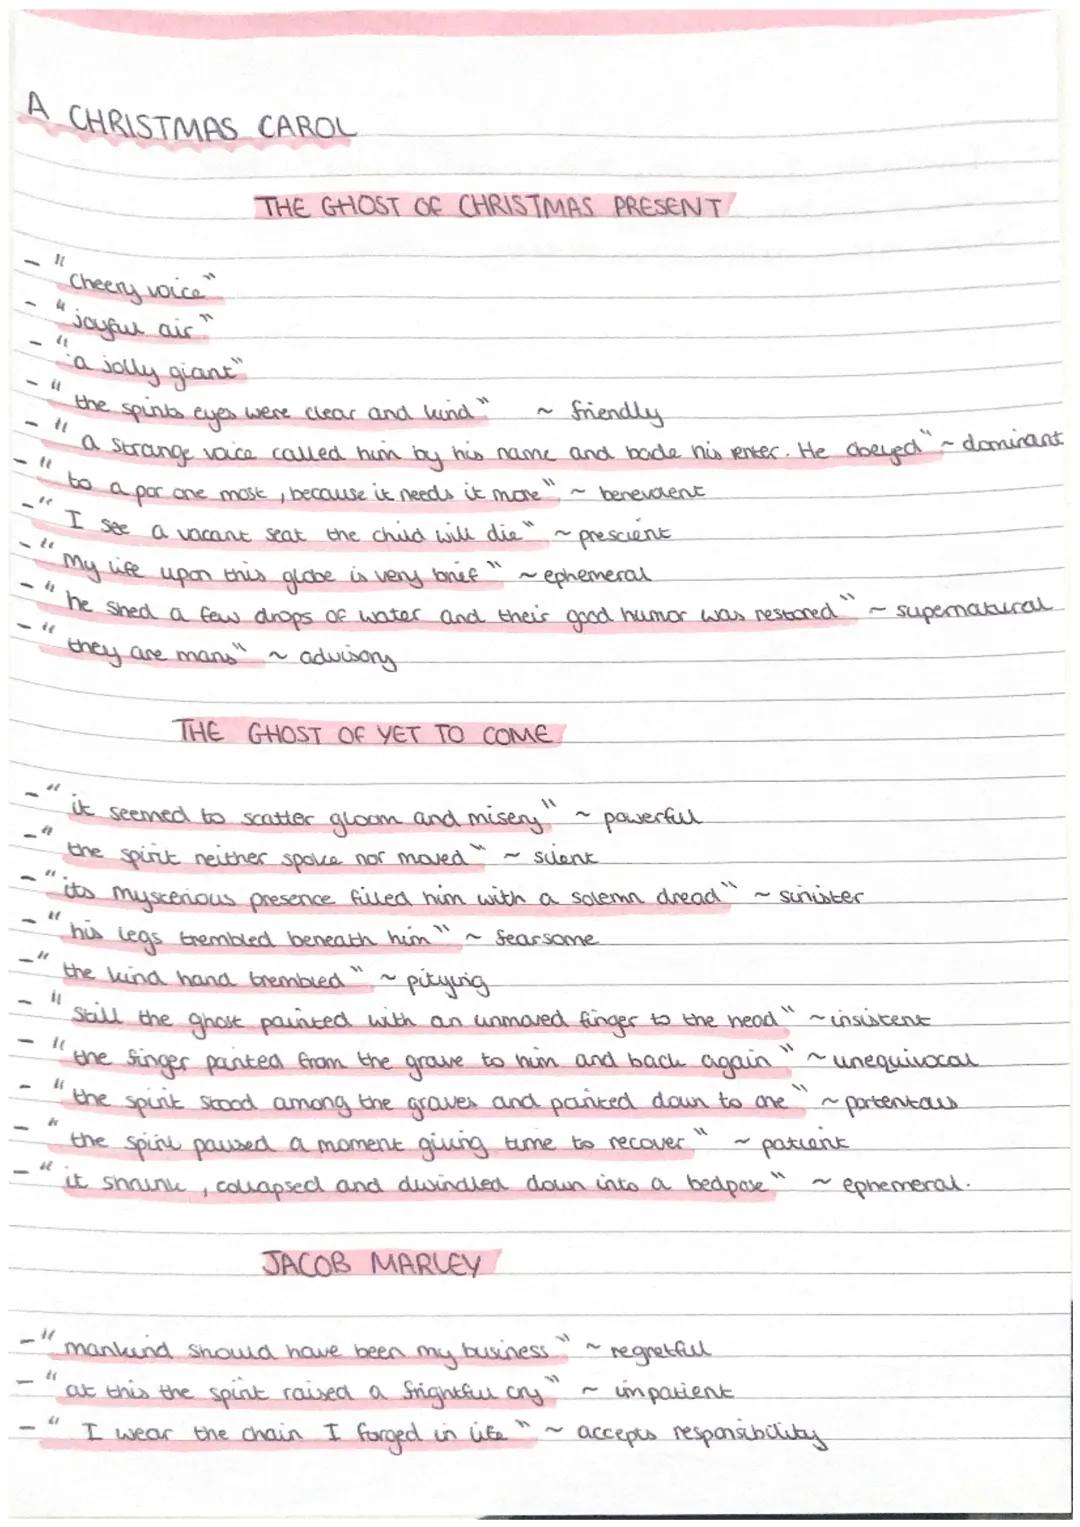 A CHRISTMAS CAROL
THE GHOST OF CHRISTMAS PRESENT
- "Cheery voice"
- "joyful air"
- "a jolly giant"
- "the spirits eyes were clear and kind" ~ friendly
- "a strange voice called him by his name and bade his enter. He obeyed" ~ dominant
- "to a poor one most, because it needs it more" ~ benevolent
- "I see a vacant seat the child will die" ~ prescient
- "My life upon this globe is very brief" ~ ephemeral
- "he shed a few drops of water and their good humor was restored" ~ supernatural
- "they are mans" ~ advisory
THE GHOST OF YET TO COME
- "it seemed to scatter gloom and misery" ~ powerful
- "the spirit neither spoke nor moved" ~ silent
- "its mysterious presence filled him with a solemn dread" ~ sinister
- "his legs trembled beneath him" ~ fearsome
- "the kind hand trembled" ~ pitying
- "Still the ghost pointed with an unmoved finger to the head" ~ insistent
- "the finger pointed from the grave to him and back again" ~ unequivocal
- "the spirit stood among the graves and pointed down to one" ~ portentous
- "the spirit paused a moment giving time to recover" ~ patient
- "it shrunk, collapsed and dwindled down into a bedpose" ~ ephemeral.
JACOB MARLEY
- "mankind should have been my business" ~ regretful
- "at this the spirit raised a frightful cry" ~ impatient
- "I wear the chain I forged in life" ~ accepts responsibility